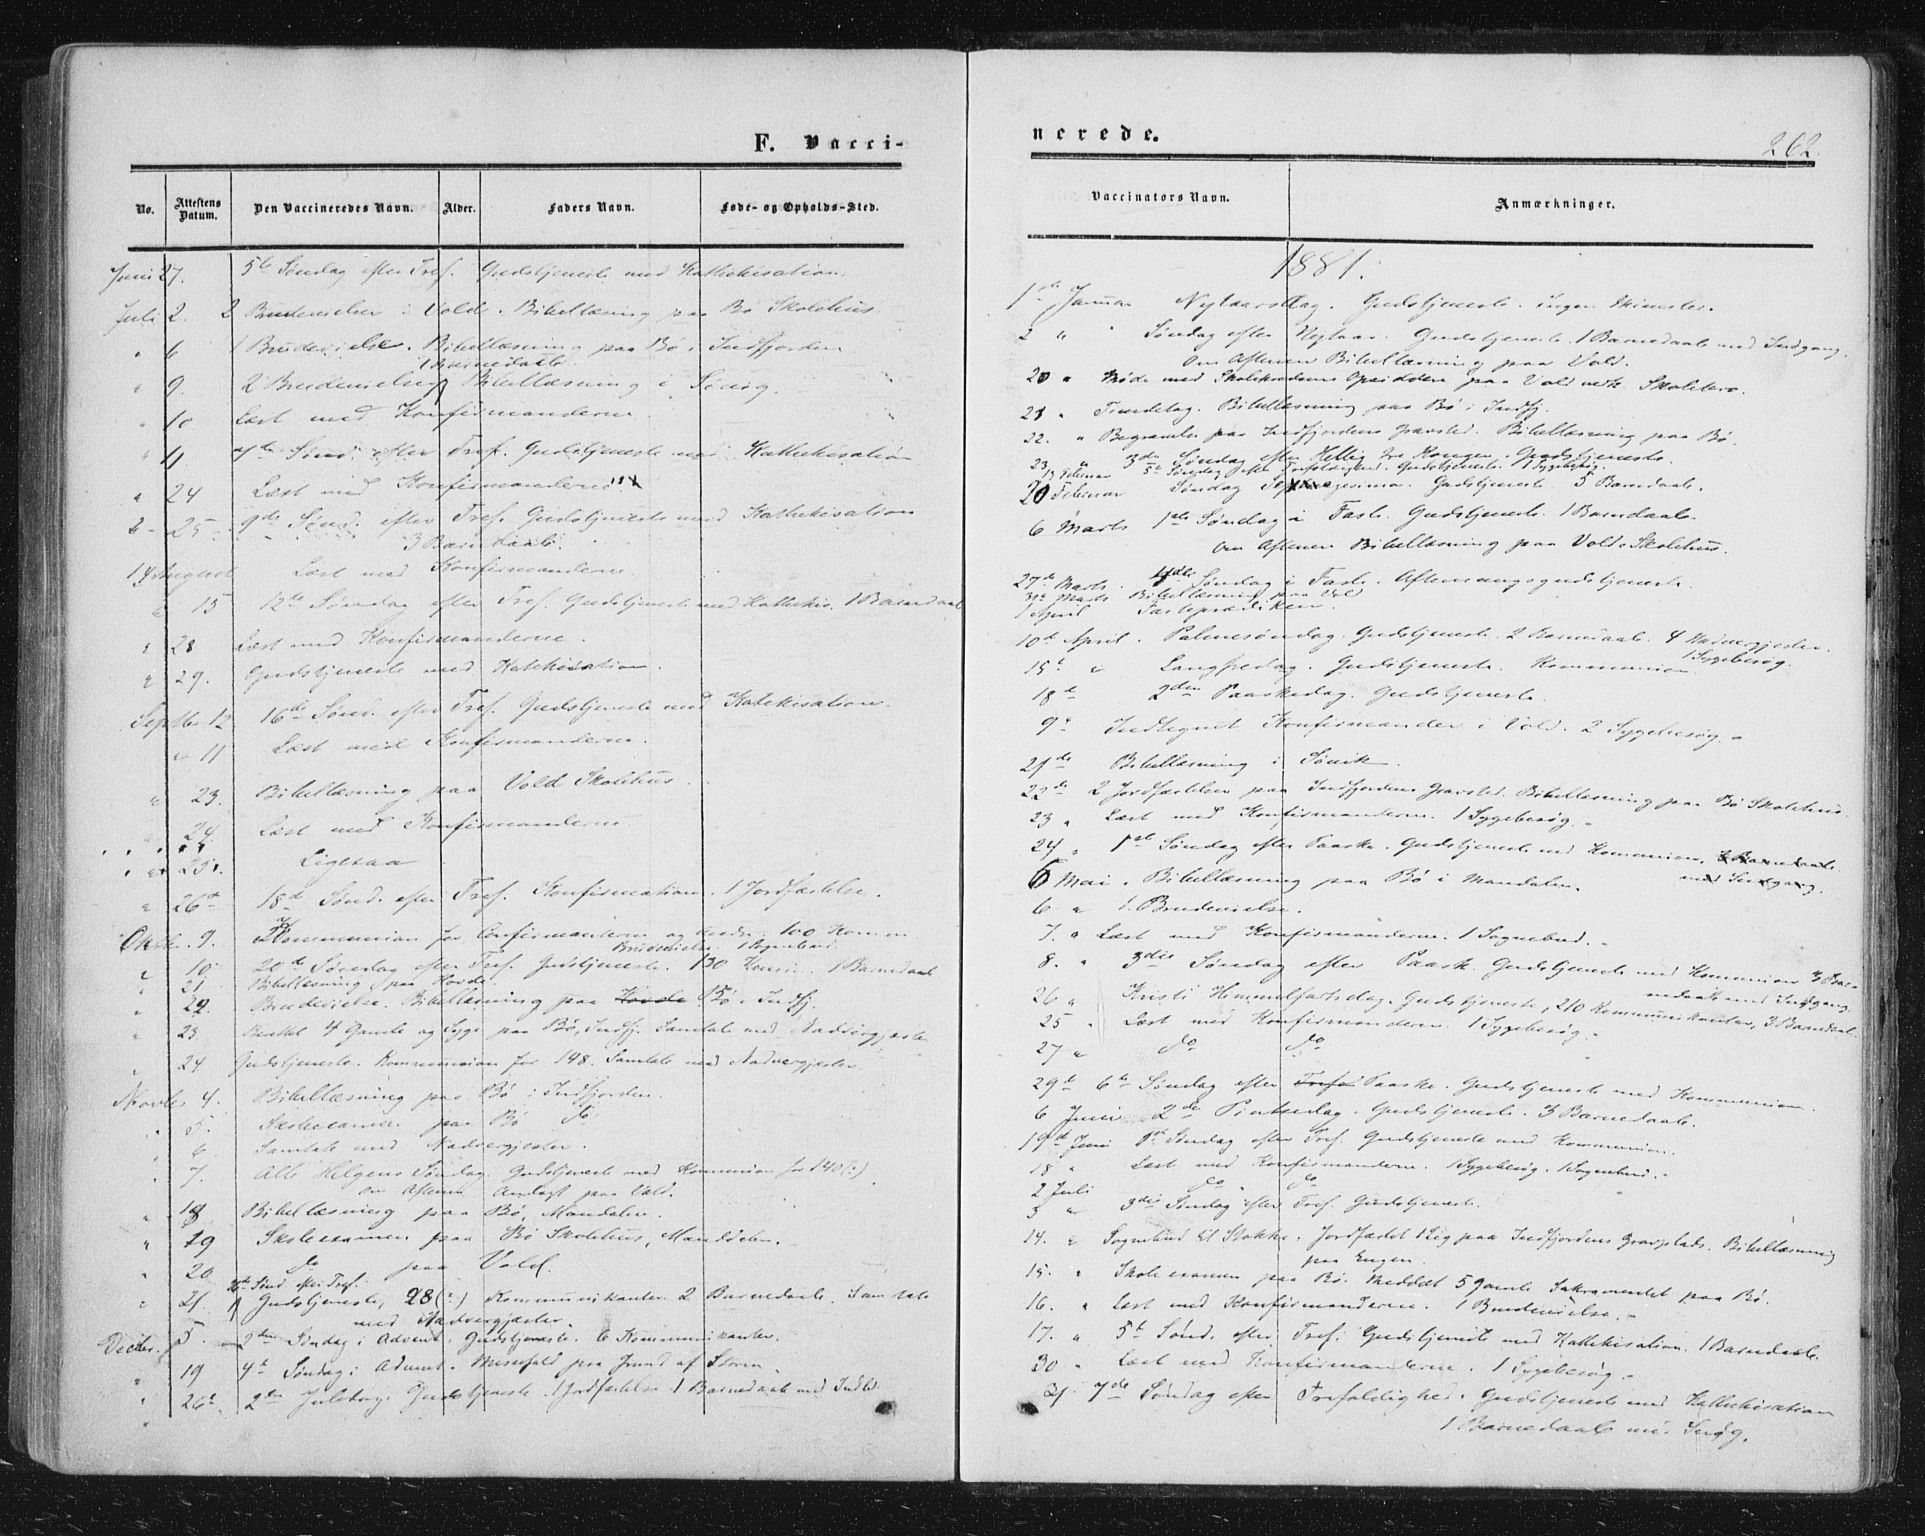 F. Vacci-
No.
Attestens Datum.
Den Vaccineredes Navn.
Alder.
Faders Navn.
Føde- og Opholds-Sted.
Juni 27. 5te Søndag efter Tref. Gudstjeneste med Kathekisation.
Juli 2. 2 Brudevielser i Vold. Bibellæsning paa Bø Skolehus.
" 6 1 Brudevielse. Bibellæsning paa Bø i Indfjorden
1 Barnedaab
" 9. 2 Brudevielser, Bibellæsning i
" 10 Læst med Konfirmanderne.
" 11 7de Sønd. efter Tref. Gudstjeneste med Kathekisation
" 24 Læst med Konfirmanderne
25 9de Sønd. efter Tref. Gudstjeneste med Kathekisation
3 Barnedaab.
14 August Læst med Konfirmanderne.
" 15 12te Søndag efter Tref. Gudstjeneste med Kathekis. 1 Barnedaab
" 28 Læst med Konfirmanderne.
" 29. Gudstjeneste med Katekisation.
Septbr 12 16de Sønd. efter Tref. Gudstjeneste med Katekisation.
" 11 Læst med Konfirmanderne.
" 23. Bibellæsning paa Vold Skolehus.
" 24. Læst med Konfirmanderne
" 25. Ligesaa
" 26de 18de Sønd. efter Tref. Konfirmation. 1 Jordfæstelse.
Oktbr. 9. Kommunion for Confirmanterne og andre. 100 Komm
Brudevielse. 1 Sognebud.
" 10 20de Søndag efter Tref. Gudstjeneste. 130 1 Barnedaab
" 21 Bibellæsning paa Hovde.
" 22. Brudevielse. Bibellæsning paa Hovde Bø i Indfj.
" 23. 4 Gamle og Syge paa Bø, Indfj. Samtale med Nadvergjester
" 24 Gudstjeneste. Kommunion for 148. Samtale med Nadvergjester
Novbr 4. Bibellæsning paa Bø i Indfjorden.
" 5. Skoleexamen paa Bø do
" 6. Samtale med Nadvergjester.
" 7. Alle Helgens Søndag. Gudstjeneste med Kommunion for 140(?)
om Aftenen Andagt paa Vold.
" 18 Bibellæsning paa Bø, Mandalen.
" 19 Skoleexamen paa Bø Skolehus, Manddalen.
" 20 do paa Vold.
Sønd efter Tref.
" 21. Gudstjeneste, 28(?) Kommunikanter. 2 Barnedaab. Samtale
med Nadvergjester.
Decbr. 5. 2den Søndag i Advent. Gudstjeneste. 6 Kommunikanter.
" 19 4de Søndag i Advent. Messefald paa Grund af Storm.
" 26de 2den Juledag. Gudstjeneste. 1 Jordfæstelse 1 Barnedaab med Indld.
nerede.
262.
Vaccinators Navn.
Anmærkninger.
1881.
1ste Januar Nytaarsdag. Gudstjeneste. ingen
2 " " Søndag efter Nytaar. Gudstjeneste. 1 Barnedaab med Indgang.
Om Aftenen Bibellæsning paa Vold.
20 " Møde med Skolekredsens Opsiddere paa Vold vedk. Skolebro.
21 " Bibellæsning paa Bø i Indfj.
22. " Begravelse paa Indfjordens Gravsted. Bibellæsning paa Bø.
23 " 3die Søndag efter Hellig tre Konger. Gudstjeneste.
13 Februar 5te Søndag efter Gudstjeneste. 1 Sygebesøg.
20 Februar Søndag Gudstjeneste 5 Barnedaab.
6 Marts 1ste Søndag i Faste. Gudstjeneste. 1 Barnedaab
Om Aftenen Bibellæsning paa Volds Skolehus.
27de Marts. 4de Søndag i Faste. Aftensangsgudstjeneste.
31te Marts Bibellæsning paa Vold
1 April Fasteprædiken.
10de April. Palmesøndag. Gudstjeneste. 2 Barnedaab. 4 Nadvergjester.
1 Sygebesøg.
15de " Langfredag. Gudstjeneste. Kommunion
18de 2den Paaskedag. Gudstjeneste.
9de Indtegnet Konfirmander i Vold. 2 Sygebesøg.
21de Bibellæsning i
22de 2 Jordfæstelser paa Indfjordens Gravsted. Bibellæsning paa Bø Skolehus
23 " Læst med Konfirmanderne. 1 Sygebesøg.
24 " 1ste Søndag efter Paaske. Gudstjeneste med Kommunion, 3 Barnedaab
med Indgang.
6 Mai. Bibellæsning paa Bø i Mandalen.
6 " 1 Brudevielse.
7. " Læst med Konfirmanderne. 1 Sognebud.
8. " 3die Søndag efter Paask. Gudstjeneste med Kommunion 3 Bar-
nedaab med Indgang
26 " Kristi Himmelfartsdag. Gudstjeneste, 210 Kommunikanter, 3 Barnedaab.
25 " Læst med Konfirmanderne. 1 Sygebesøg.
27 " do do
29de 6te Søndag efter Trefol Paaske. Gudstjeneste med Kommunion.
6 Juni 2den Pintsedag. Gudstjeneste. 3 Barnedaab.
19de Juni 1ste Søndag efter Tref. Gudstjeneste med Kommunion.
18 " Læst med Konfirmanderne. 1 Sygebesøg. 1 Sognebud.
2 Juli do do
3 " 3die Søndag efter Tref. Gudstjeneste.
14. " Sognebud til Stokke. Jordfæstet 1 Lig paa Indfjordens Gravplads. Bibellæsning
paa Engen.
15. " Skoleexamen paa Bø. Meddelt 5 gamle Sakramentet paa Bø.
16. " Læst med Konfirmanderne. 1 Brudevielse.
17. " 5te Sønd. efter Tref. Gudstjeneste med Kathekisation. 1 Barnedaab.
30 " Læst med Konfirmanderne. 1 Sygebesøg.
31. 7de Søndag efter Trefoldighed. Gudstjeneste med Kathekisation
1 Barnedaab med